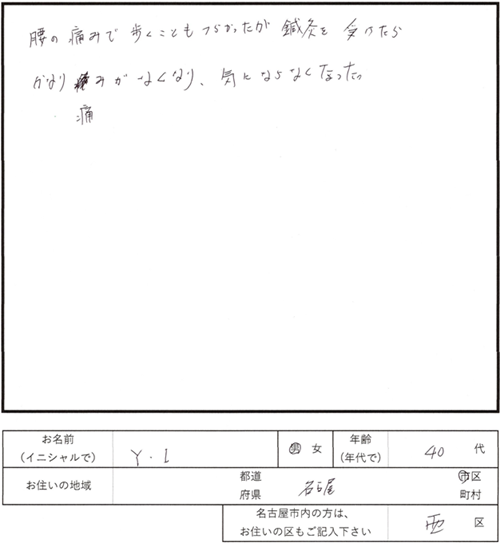 腰の痛みで歩くこともつらかったが鍼灸を受けたら
かなり痛みがなくなり、気にならなくなった。
痛
お名前
(イニシャルで)
Y.I
男 女
年齢
(年代で)
40 代
お住いの地域
都道
府県
名古屋
市区
町村
名古屋市内の方は、
お住いの区もご記入下さい
西 区